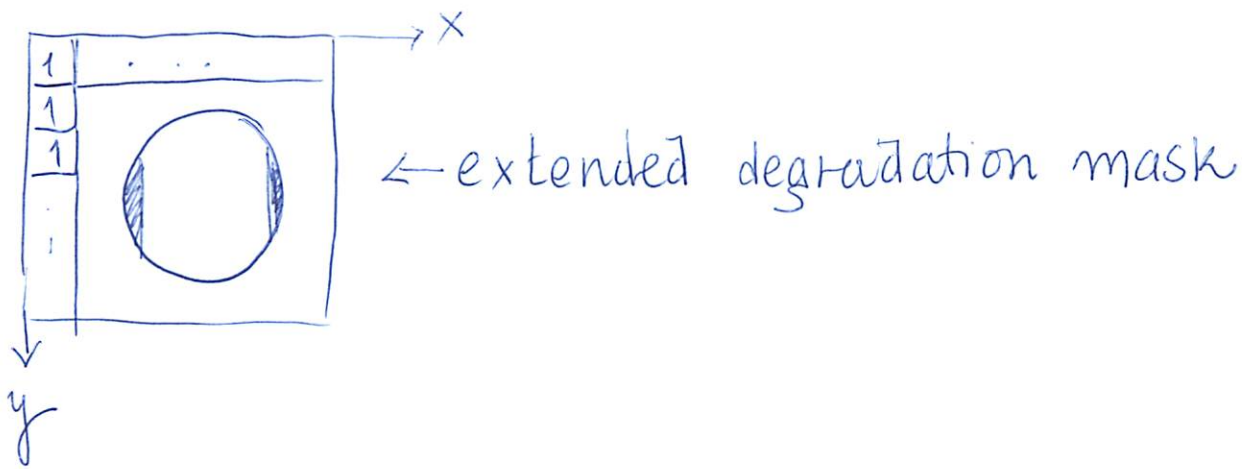 x
1 . . .
1
1
← extended degradation mask
.
.
y